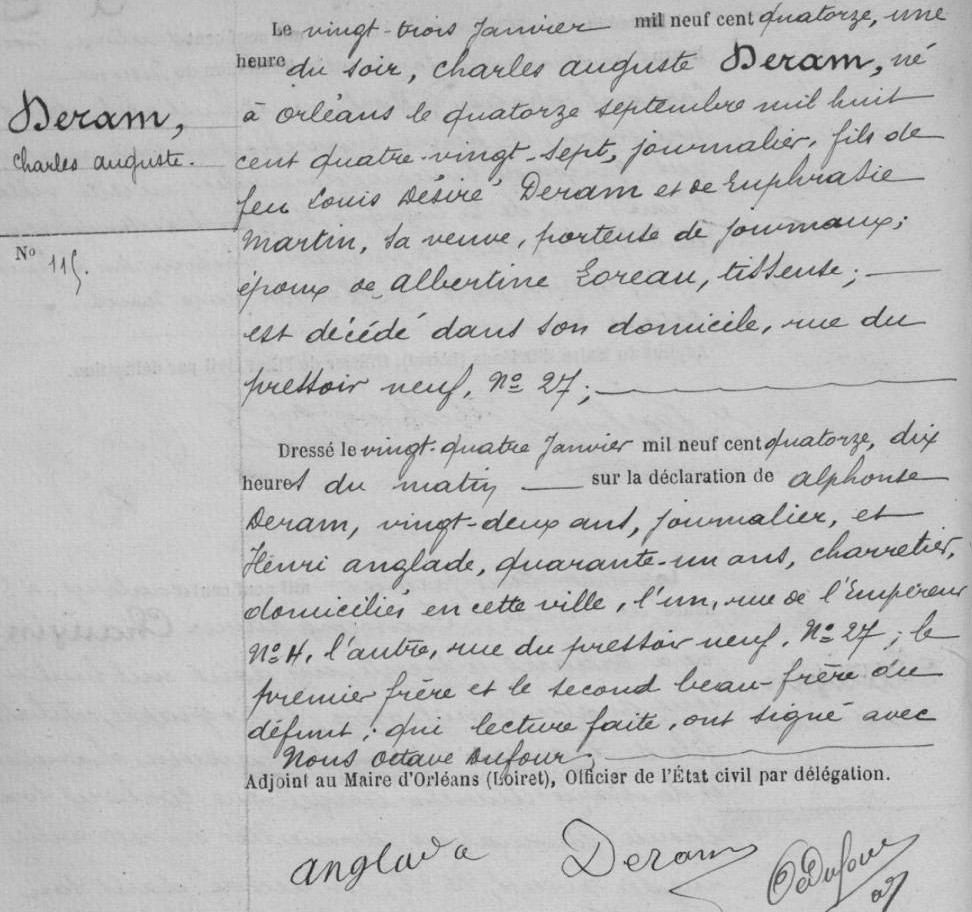 Deram,
Charles Auguste.
No 115.
Le vingt-trois Janvier mil neuf cent quatorze, une
heure du soir, Charles Auguste Deram, né
à Orléans le quatorze septembre mil huit
cent quatre-vingt-sept, journalier, fils de
feu Louis Désiré Deram et de Euphrasie
Martin, sa veuve, porteuse de journaux;
époux de Albertine Loreau, tisseuse;
est décédé dans son domicile, rue du
pressoir neuf, No 27;
Dressé le vingt-quatre Janvier mil neuf cent quatorze, dix
heures du matin sur la déclaration de Alphonse
Deram, vingt-deux ans, journalier, et
Henri Anglade, quarante-un ans, charretier,
domiciliés en cette ville, l'un, rue de l'Empereur
No 4, l'autre, rue du pressoir neuf, No 27; le
premier frère et le second beau-frère du
défunt; qui lecture faite, ont signé avec
Nous Octave Dufour,
Adjoint au Maire d'Orléans (Loiret), Officier de l'État civil par délégation.
Anglade Deram O Dufour